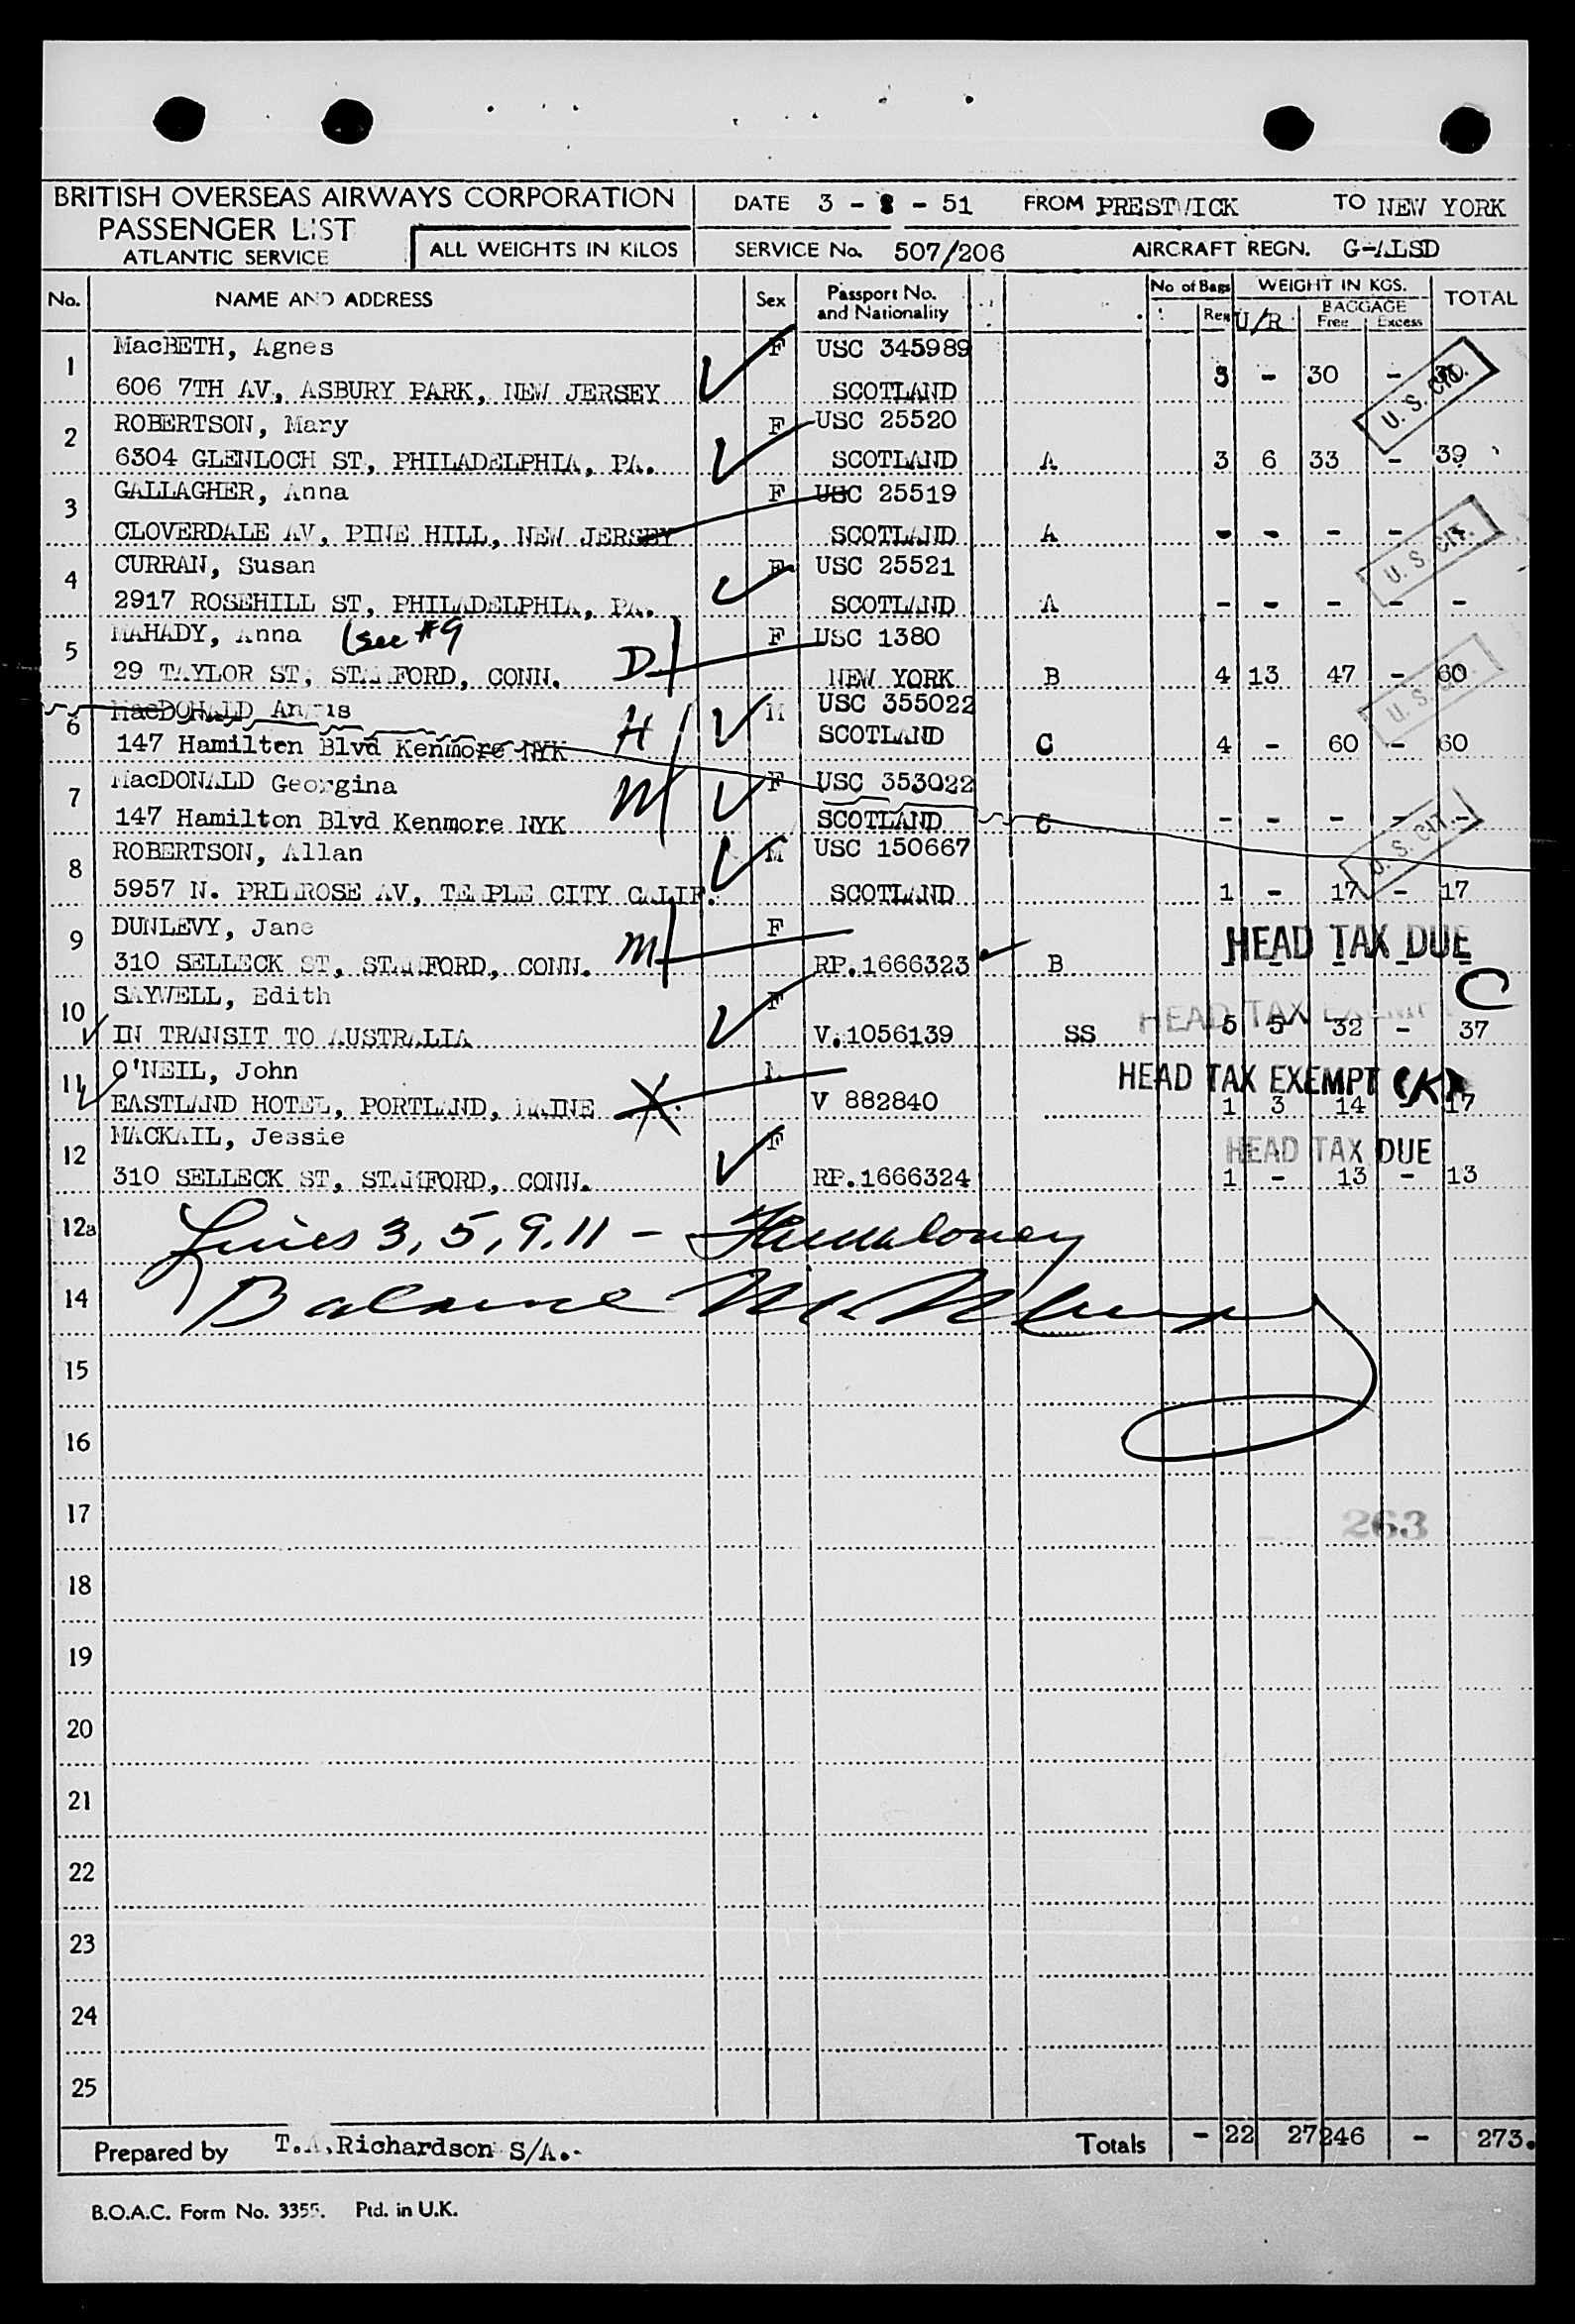 BRITISH OVERSEAS AIRWAYS CORPORATION
PASSENGER LIST
ATLANTIC SERVICE
ALL WEIGHTS IN KILOS
DATE 3 - 8 - 51 FROM PRESTWICK TO NEW YORK
SERVICE No. 507/206 AIRCRAFT REGN. G-ALSD
No. NAME AND ADDRESS Sex Passport No. and Nationality No of Bags Reg U/R WEIGHT IN KGS. BAGGAGE Free Excess TOTAL
1 MacBETH, Agnes F USC 345989
606 7TH AV, ASBURY PARK, NEW JERSEY SCOTLAND 3 - 30 -
U. S. CIT.
2 ROBERTSON, Mary F USC 25520
6304 GLENLOCH ST, PHILADELPHIA, PA. SCOTLAND A 3 6 33 - 39
3 GALLAGHER, Anna F USC 25519
CLOVERDALE AV, PINE HILL, NEW JERSEY SCOTLAND A - - - -
U. S. CIT.
4 CURRAN, Susan F USC 25521
2917 ROSEHILL ST, PHILADELPHIA, PA. SCOTLAND A - - - - -
5 MAHADY, Anna (see #9 F USC 1380
29 TAYLOR ST, STAMFORD, CONN. D NEW YORK B 4 13 47 - 60
U. S.
6 MacDONALD Angus H M USC 355022
147 Hamilton Blvd Kenmore NYK SCOTLAND C 4 - 60 - 60
7 MacDONALD Georgina M F USC 353022
147 Hamilton Blvd Kenmore NYK SCOTLAND C - - - - -
U. S. CIT.
8 ROBERTSON, Allan M USC 150667
5957 N. PRIMROSE AV, TEMPLE CITY CALIF. SCOTLAND 1 - 17 - 17
9 DUNLEVY, Jane F HEAD TAX DUE
310 SELLECK ST, STAMFORD, CONN. M RP.1666323 B - - - - -
10 SAYWELL, Edith F HEAD TAX C
IN TRANSIT TO AUSTRALIA V.1056139 SS 5 5 32 - 37
11 O'NEIL, John M HEAD TAX EXEMPT (K)
EASTLAND HOTEL, PORTLAND, MAINE X V 882840 1 3 14 - 17
12 MACKAIL, Jessie F HEAD TAX DUE
310 SELLECK ST, STAMFORD, CONN. RP.1666324 1 - 13 - 13
12a Lines 3, 5, 9, 11 -
14 Balance
15
16
17 263
18
19
20
21
22
23
24
25
Prepared by T.A.Richardson S/A.- Totals - 22 27 246 - 273.
B.O.A.C. Form No. 3355. Ptd. in U.K.